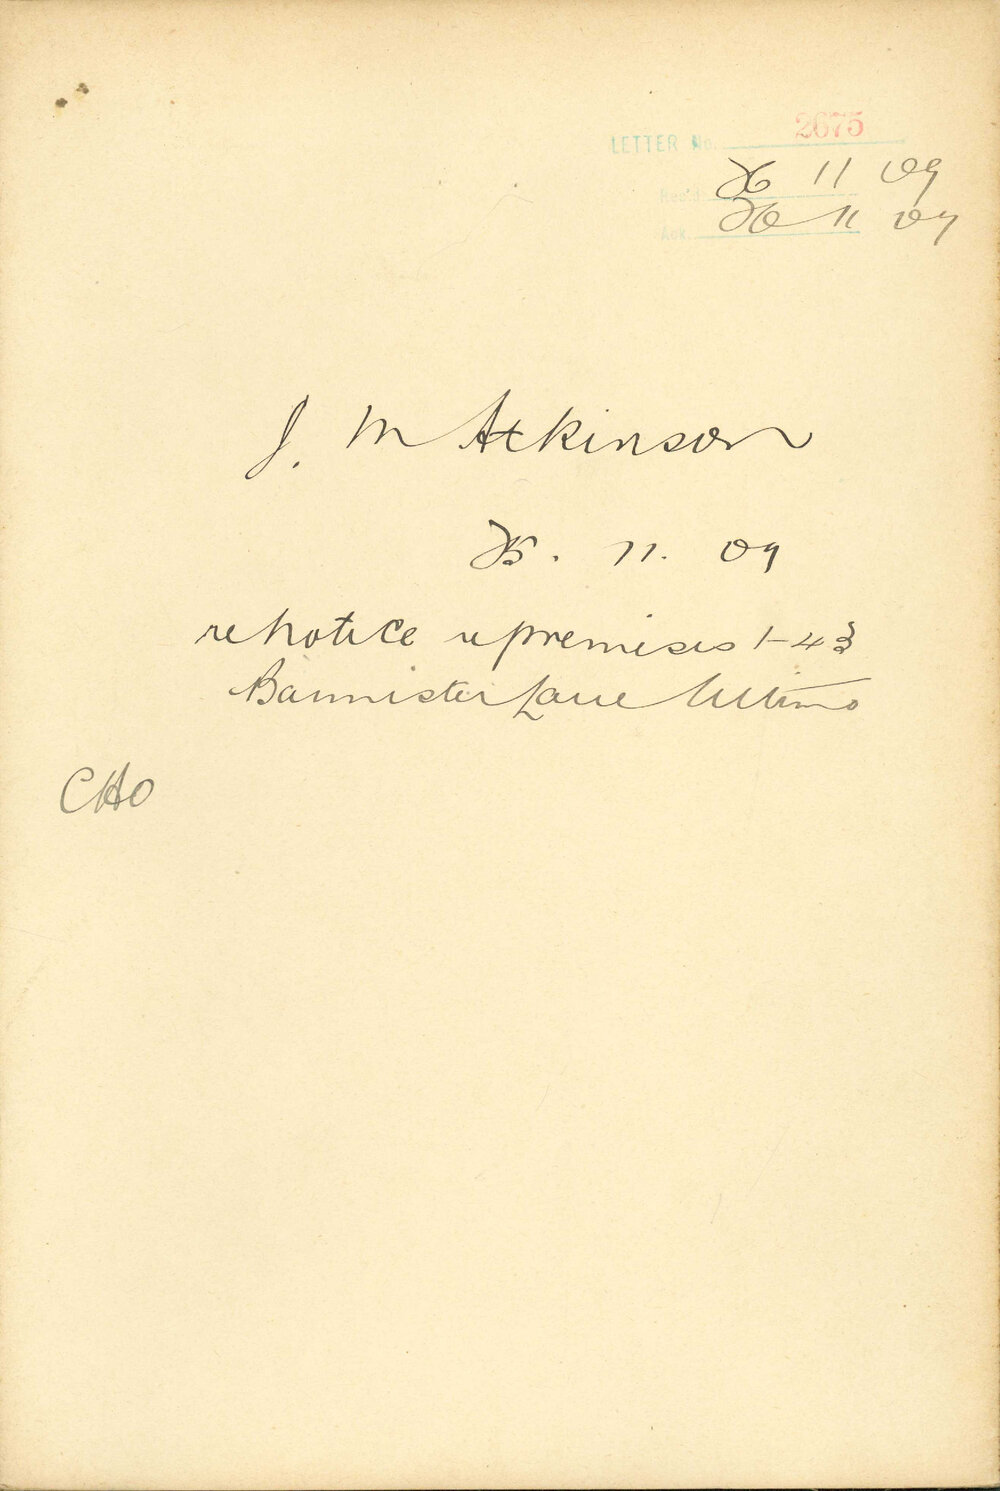 LETTER No. 2675
Recd. 26 11 09
Ack. 26 11 09
J. M Atkinson
25. 11. 09
re notice re premises 1-43
Bannister Lane Ultimo
CHO